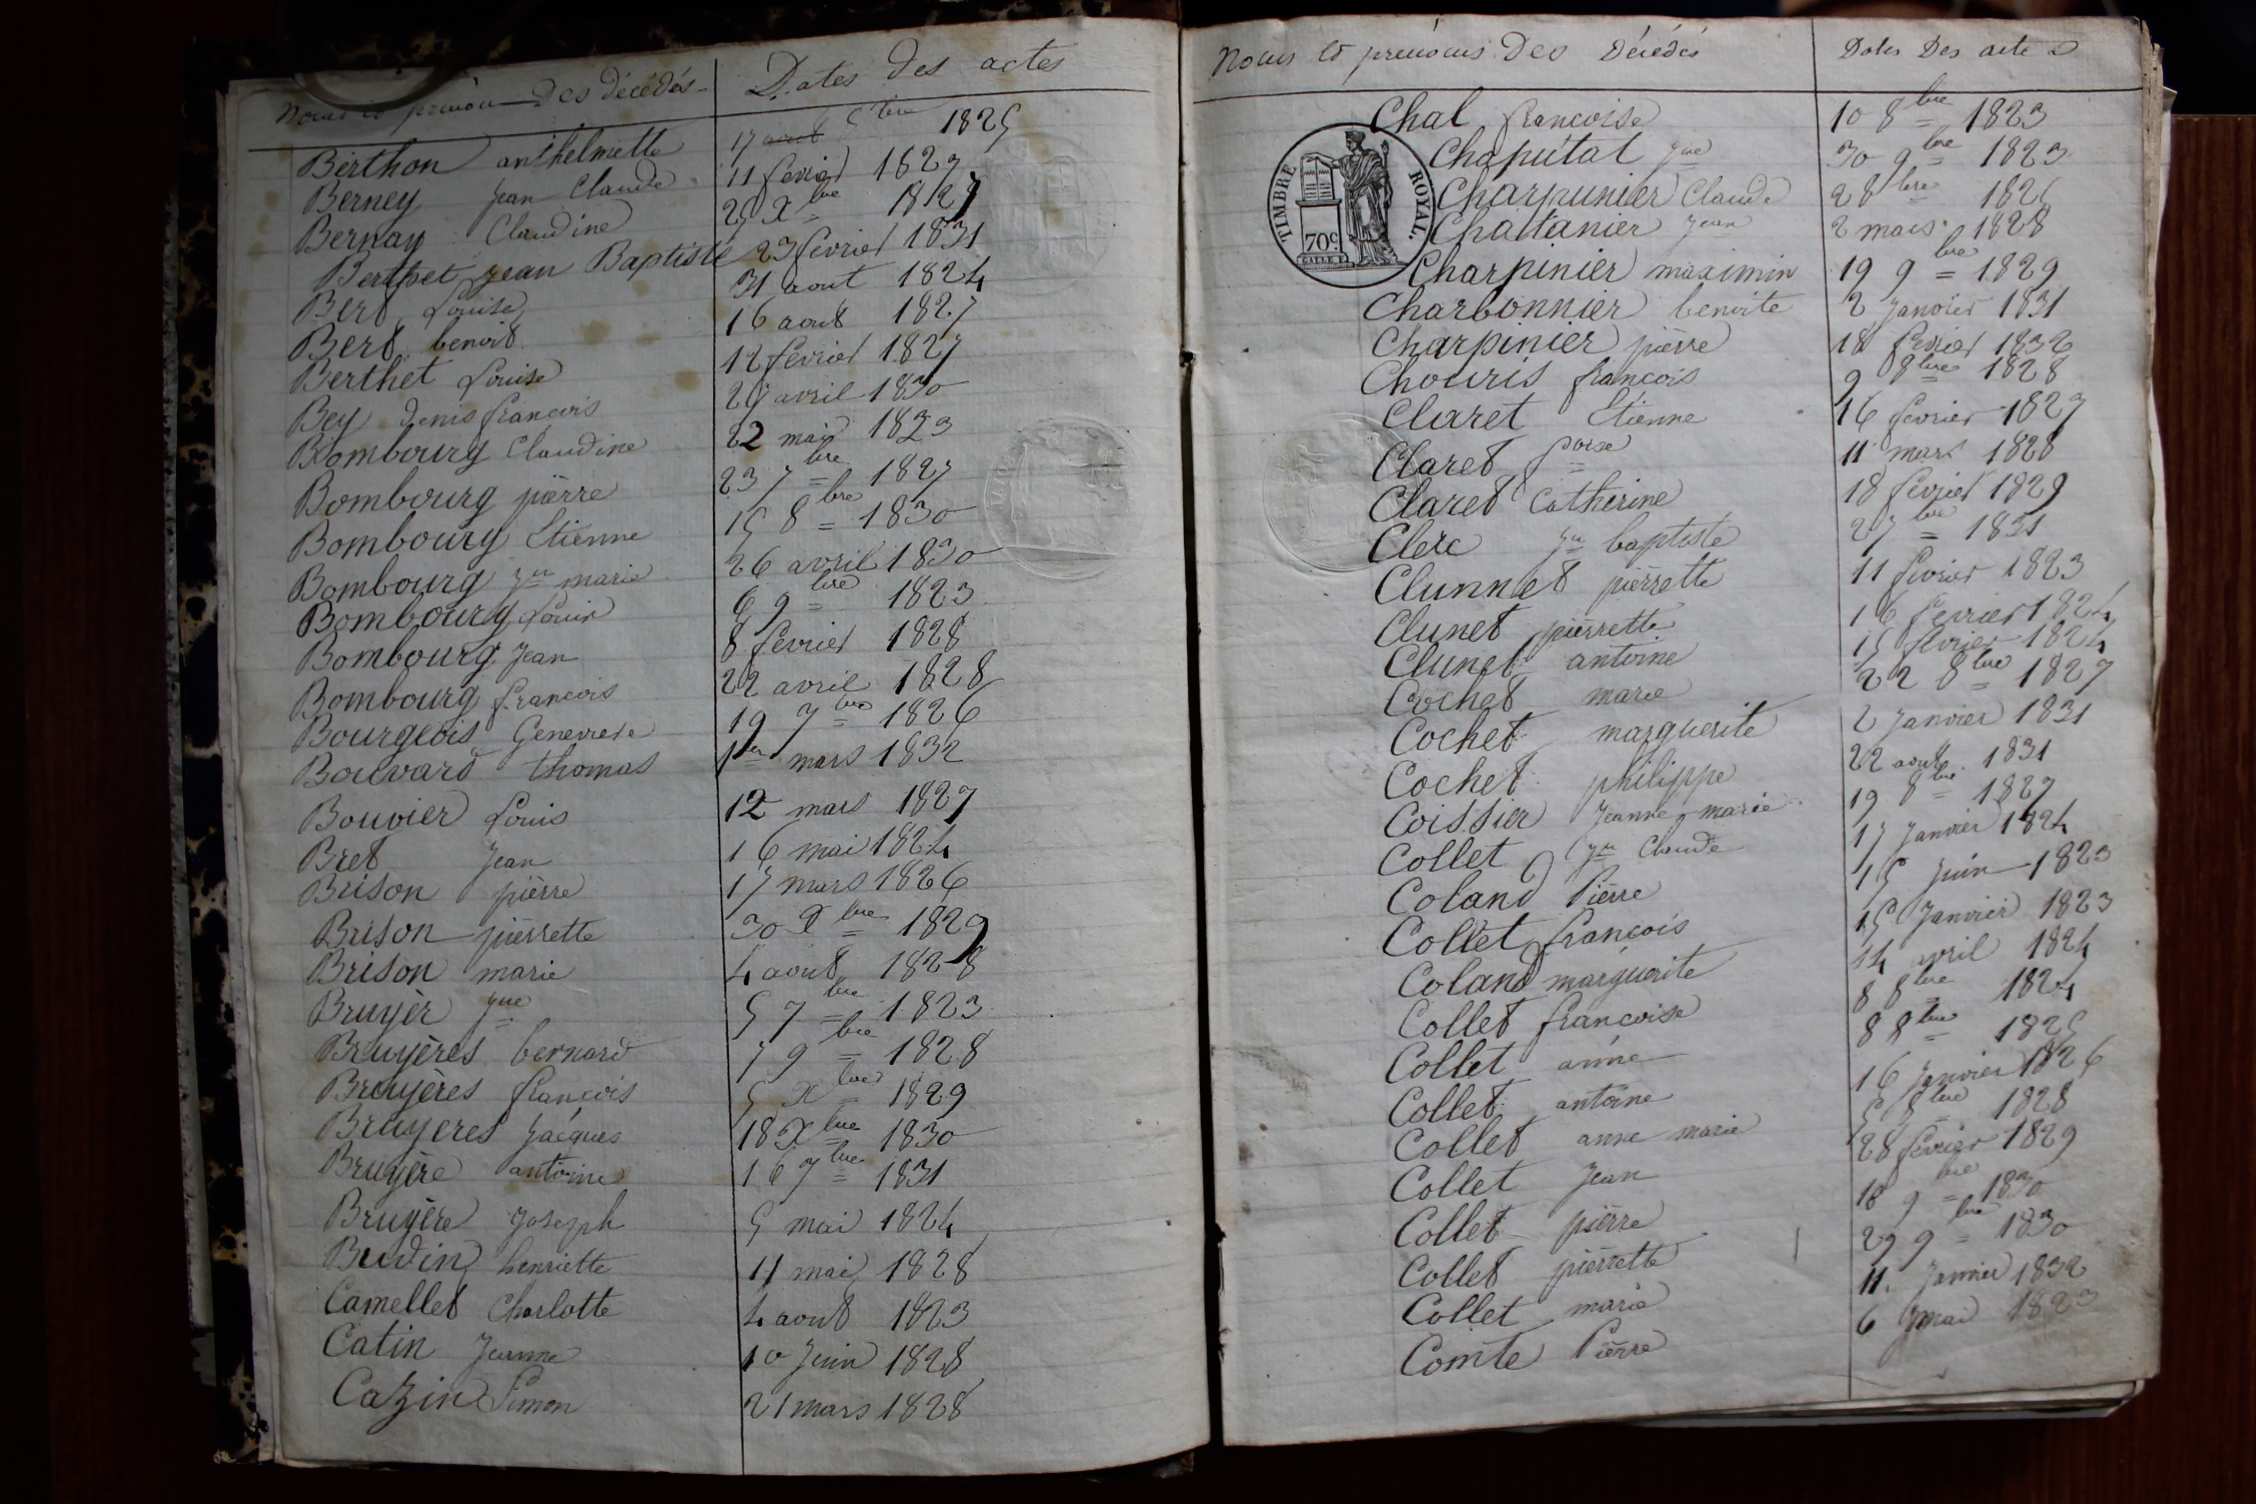 Noms et prénoms des décédés
Dates des actes
Berthon anthelmette 17 août 8bre 1825
Berney Jean Claude 11 fevrier 1827
Bernay Claudine 25 Xbre 1827
Berthet Jean Baptiste 23 fevrier 1831
Bert Louise 31 aout 1824
Bert benoit 16 aout 1827
Berthet Louise 12 fevrier 1827
Bey denis françois 29 avril 1830
Bombourg Claudine 22 mai 1823
Bombourg pièrre 23 7bre 1827
Bombourg Etienne 15 8bre 1830
Bombourg Jn marie 26 avril 1830
Bombourg Louis 6 9bre 1823
Bombourg Jean 8 fevrier 1828
Bombourg françois 22 avril 1828
Bourgeois Genevieve 19 7bre 1826
Boulvard thomas 1er mars 1832
Bouvier Louis 12 mars 1827
Bret Jean 16 mai 1824
Brison pièrre 17 mars 1826
Brison pièrrette 30 Xbre 1829
Brison marie 4 aout 1828
Bruyèr Jne 5 7bre 1823
Bruyères bernard 7 9bre 1828
Bruyères françois 5 Xbre 1829
Bruyeres Jacques 18 Xbre 1830
Bruyère antoine 16 7bre 1831
Bruyère Joseph 5 mai 1824
Budin henriette 11 mai 1828
Camellet Charlotte 4 aout 1823
Catin Jeanne 10 Juin 1828
Cazin Simon 21 mars 1828
Noms et prénoms Des Décédés
Dates Des actes
TIMBRE ROYAL.
70c.
Chal françoise 10 8bre 1823
Chaputal Jne 30 9bre 1823
Charpunier Claude 28bre 1826
Chattanier Jean 2 mars 1828
Charpinier maximin 19 9bre 1829
Charbonnier benoite 2 Janvier 1831
Charpinier pièrre 18 fevrier 1832
Chouris françois 9 8bre 1828
Claret Etienne 16 fevrier 1827
Claret foise 11 mars 1828
Claret Catherine 18 fevrier 1829
Clerc Jn baptiste 27bre 1831
Clunnet pièrrette 11 fevrier 1823
Clunet pièrrette 16 fevrier 1824
Clunet antoine 15 fevrier 1824
Cochet marie 22 8bre 1827
Cochet marguerite 2 Janvier 1831
Cochet philippe 22 aout 1831
Coissier Jeanne marie 19 8bre 1827
Collet Jn Claude 17 Janvier 1824
Coland Pièrre 15 Juin 1823
Collet françois 15 Janvier 1823
Coland marguerite 14 avril 1824
Collet françoise 8 8bre 1824
Collet anne 8 8bre 1825
Collet antoine 16 Janvier 1826
Collet anne marie 5 8bre 1828
Collet Jean 28 fevrier 1829
Collet pièrre 18 9bre 1830
Collet pièrrette 29 9bre 1830
Collet marie 11 Janvier 1832
Comte Pièrre 6 mai 1823